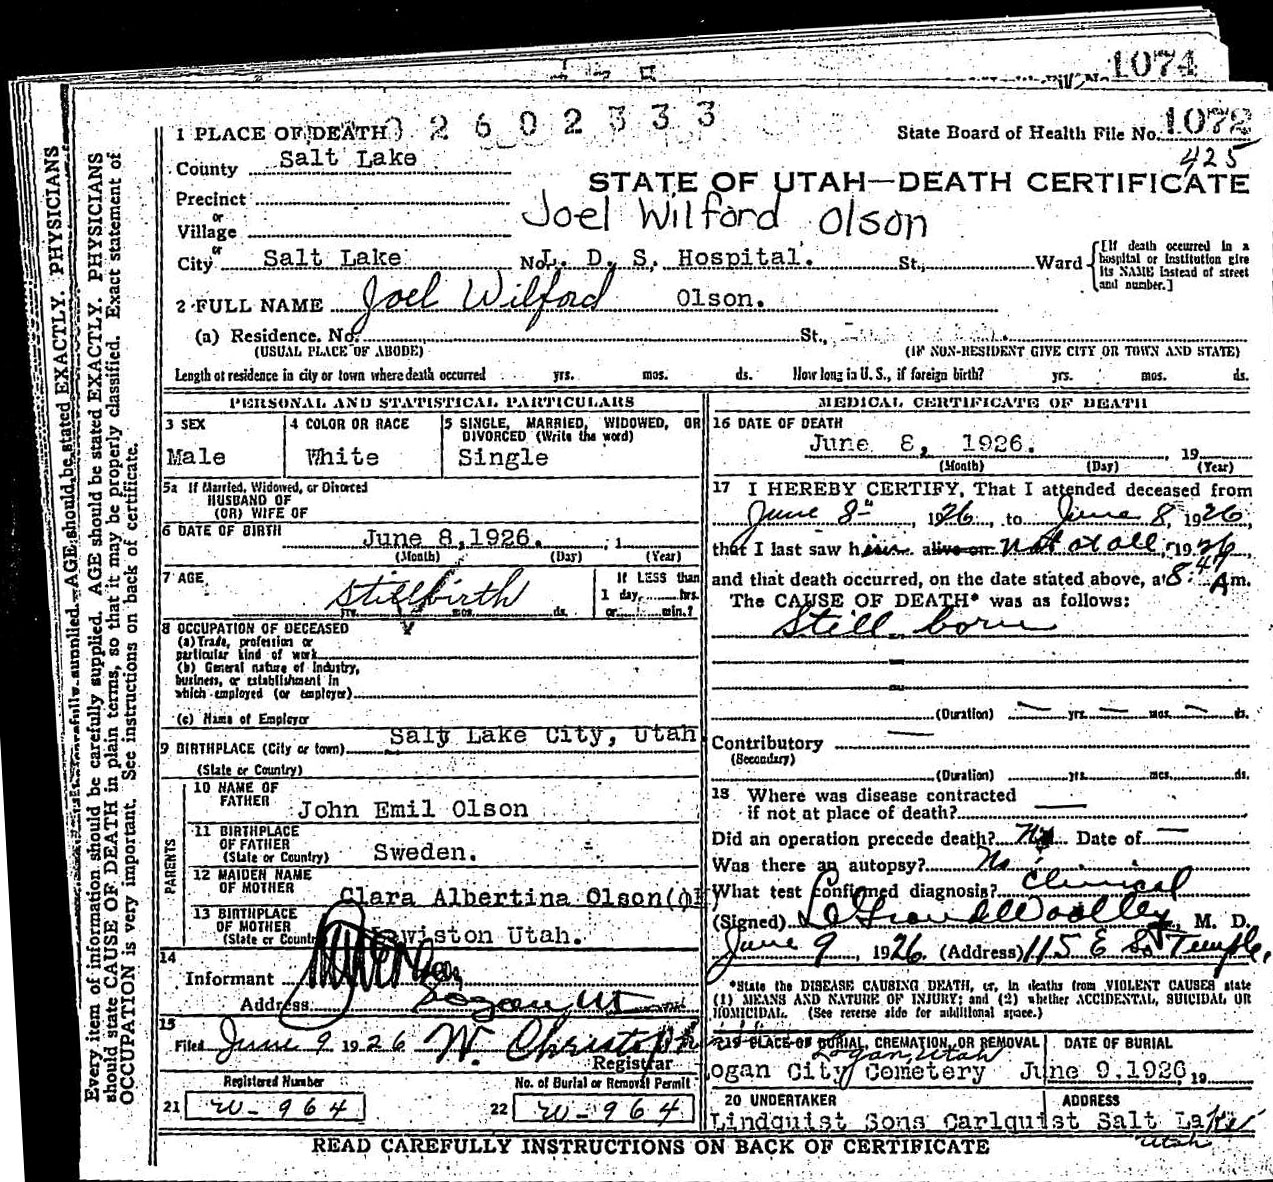 1074
2602333
1 PLACE OF DEATH
State Board of Health File No. 1072
425
County Salt Lake
STATE OF UTAH—DEATH CERTIFICATE
Precinct
or
Village
Joel Wilford Olson
or
City Salt Lake No. L. D. S. Hospital. St., Ward
[If death occurred in a hospital or institution give its NAME instead of street and number.]
2 FULL NAME Joel Wilford Olson.
(a) Residence. No. St.,
(USUAL PLACE OF ABODE) (IF NON-RESIDENT GIVE CITY OR TOWN AND STATE)
Length of residence in city or town where death occurred yrs. mos. ds. How long in U. S., if foreign birth? yrs. mos. ds.
PERSONAL AND STATISTICAL PARTICULARS
3 SEX
Male
4 COLOR OR RACE
White
5 SINGLE, MARRIED, WIDOWED, OR
DIVORCED (Write the word)
Single
5a If Married, Widowed, or Divorced
HUSBAND OF
(OR) WIFE OF
6 DATE OF BIRTH June 8, 1926. , 1
(Month) (Day) (Year)
7 AGE
Stillbirth
yrs. mos. ds.
If LESS than
1 day, hrs.
or min.?
8 OCCUPATION OF DECEASED
(a) Trade, profession or
particular kind of work
(b) General nature of Industry,
business, or establishment in
which employed (or employer)
(c) Name of Employer
Saly Lake City, Utah
9 BIRTHPLACE (City or town)
(State or Country)
PARENTS
10 NAME OF
FATHER
John Emil Olson
11 BIRTHPLACE
OF FATHER
(State or Country) Sweden.
12 MAIDEN NAME
OF MOTHER
Clara Albertina Olson
13 BIRTHPLACE
OF MOTHER
(State or Country) Lewiston Utah.
14
Informant
Address Logan Ut
15
Filed June 9 1926 W. Christoph
Registrar
Registered Number
21 W-964
No. of Burial or Removal Permit
22 W-964
MEDICAL CERTIFICATE OF DEATH
16 DATE OF DEATH
June 8, 1926. , 19
(Month) (Day) (Year)
17 I HEREBY CERTIFY, That I attended deceased from
June 8th, 1926, to June 8, 1926,
that I last saw him alive on not at all, 1926,
and that death occurred, on the date stated above, at 8:47 Am.
The CAUSE OF DEATH* was as follows:
Still born
(Duration) — yrs. — mos. — ds.
Contributory
(Secondary)
(Duration) yrs. mos. ds.
18 Where was disease contracted
if not at place of death?
Did an operation precede death? No Date of —
Was there an autopsy? No
What test confirmed diagnosis? Clinical
(Signed) LeGrand Woolley M. D.
June 9, 1926 (Address) 115 E So Temple,
*State the DISEASE CAUSING DEATH, or, in deaths from VIOLENT CAUSES state
(1) MEANS AND NATURE OF INJURY; and (2) whether ACCIDENTAL, SUICIDAL OR
HOMICIDAL. (See reverse side for additional space.)
19 PLACE OF BURIAL, CREMATION, OR REMOVAL
Logan, Utah
ogan City Cemetery
DATE OF BURIAL
June 9, 1926, 19
20 UNDERTAKER
Lindquist Sons Carlquist
ADDRESS
Salt Lake
Utah
READ CAREFULLY INSTRUCTIONS ON BACK OF CERTIFICATE
AGE should be stated EXACTLY. PHYSICIANS
Every item of information should be carefully supplied. AGE should be stated EXACTLY. PHYSICIANS
should state CAUSE OF DEATH in plain terms, so that it may be properly classified. Exact statement of
OCCUPATION is very important. See instructions on back of certificate.